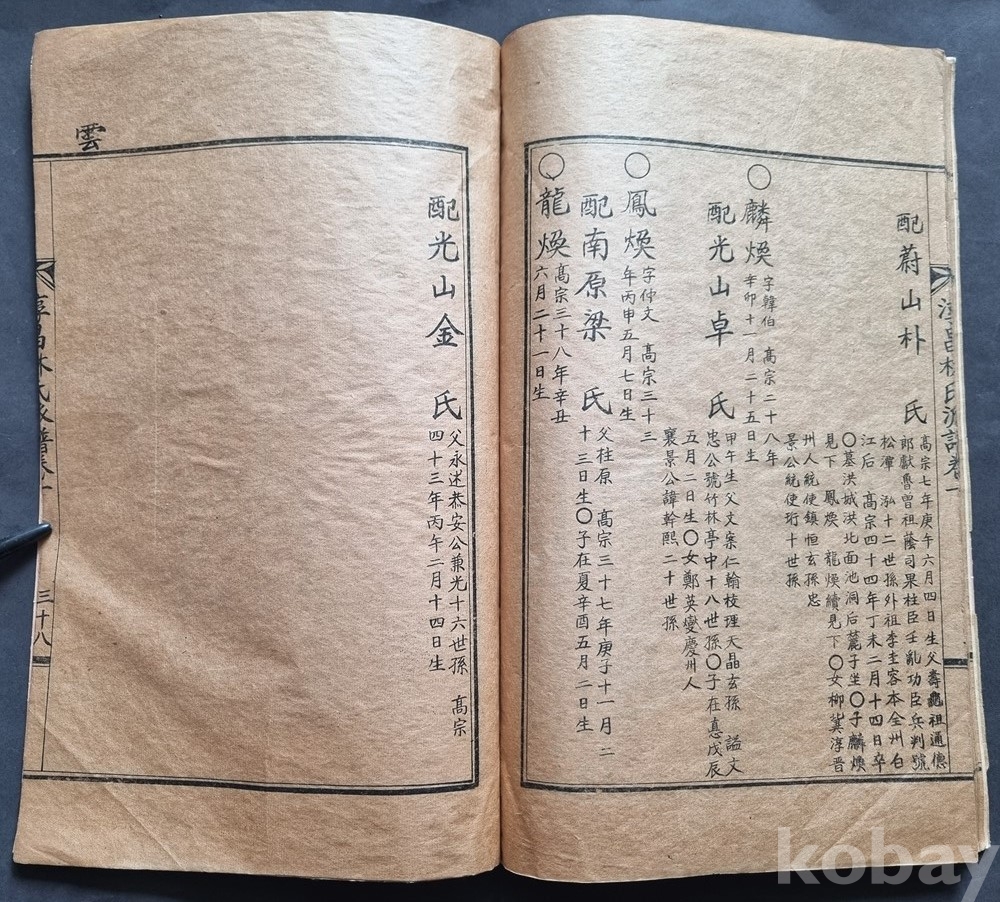 配蔚山朴 氏
高宗七年庚午六月四日生父壽龜祖通德
郎獻魯曾祖蔭司果柱臣壬亂功臣兵判號
松潭 泓十二世孫外祖李圭容本全州白
江后 高宗四十四年丁未二月十四日卒
〇墓洪城洪北面池洞后麓子坐〇子麟煥
見下 鳳煥 龍煥續見下〇女柳冀淳晋
州人統使鎮恒玄孫忠
景公統使珩十世孫
〇麟煥
字韓伯 高宗二十八年
辛卯十一月二十五日生
配光山卓 氏
甲午生父文案仁翰校理天晶玄孫 謚文
忠公號竹林亭中十八世孫〇子在惪戊辰
五月二日生〇女鄭英燮慶州人
襄景公諱幹熙二十世孫
〇鳳煥
字仲文 高宗三十三
年丙申五月七日生
配南原梁 氏
父柱原 高宗三十七年庚子十一月二
十三日生〇子在夏辛酉五月二日生
〇龍煥
高宗三十八年辛丑
六月二十一日生
配光山金 氏
父永述恭安公兼光十六世孫 高宗
四十三年丙午二月十四日生
雲
淳昌林氏派譜卷一
三十八
kobay